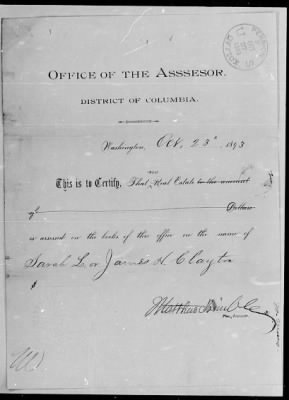 OFFICE OF THE ASSSESOR.
DISTRICT OF COLUMBIA.
Washington, Oct. 23d 1893
no
This is to Certify, That Real Estate to the amount
of Dollars
is assessed on the books of this office in the name of
Sarah L. or James H. Clayton
$
Matthew